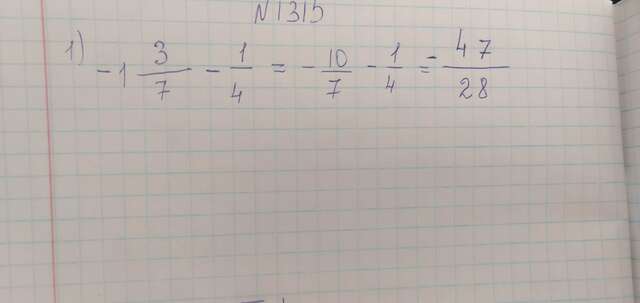 N1315
1) -1 3/7 - 1/4 = - 10/7 - 1/4 = - 47/28